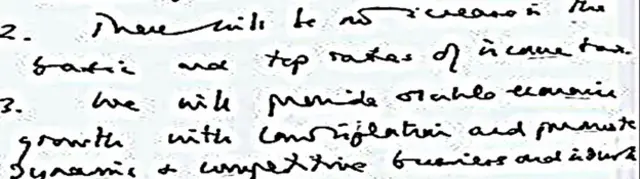 2. There will be no increase in the
basic and top rates of income tax.
3. We will provide stable economic
growth with low inflation and promote
dynamic & competitive business and industry